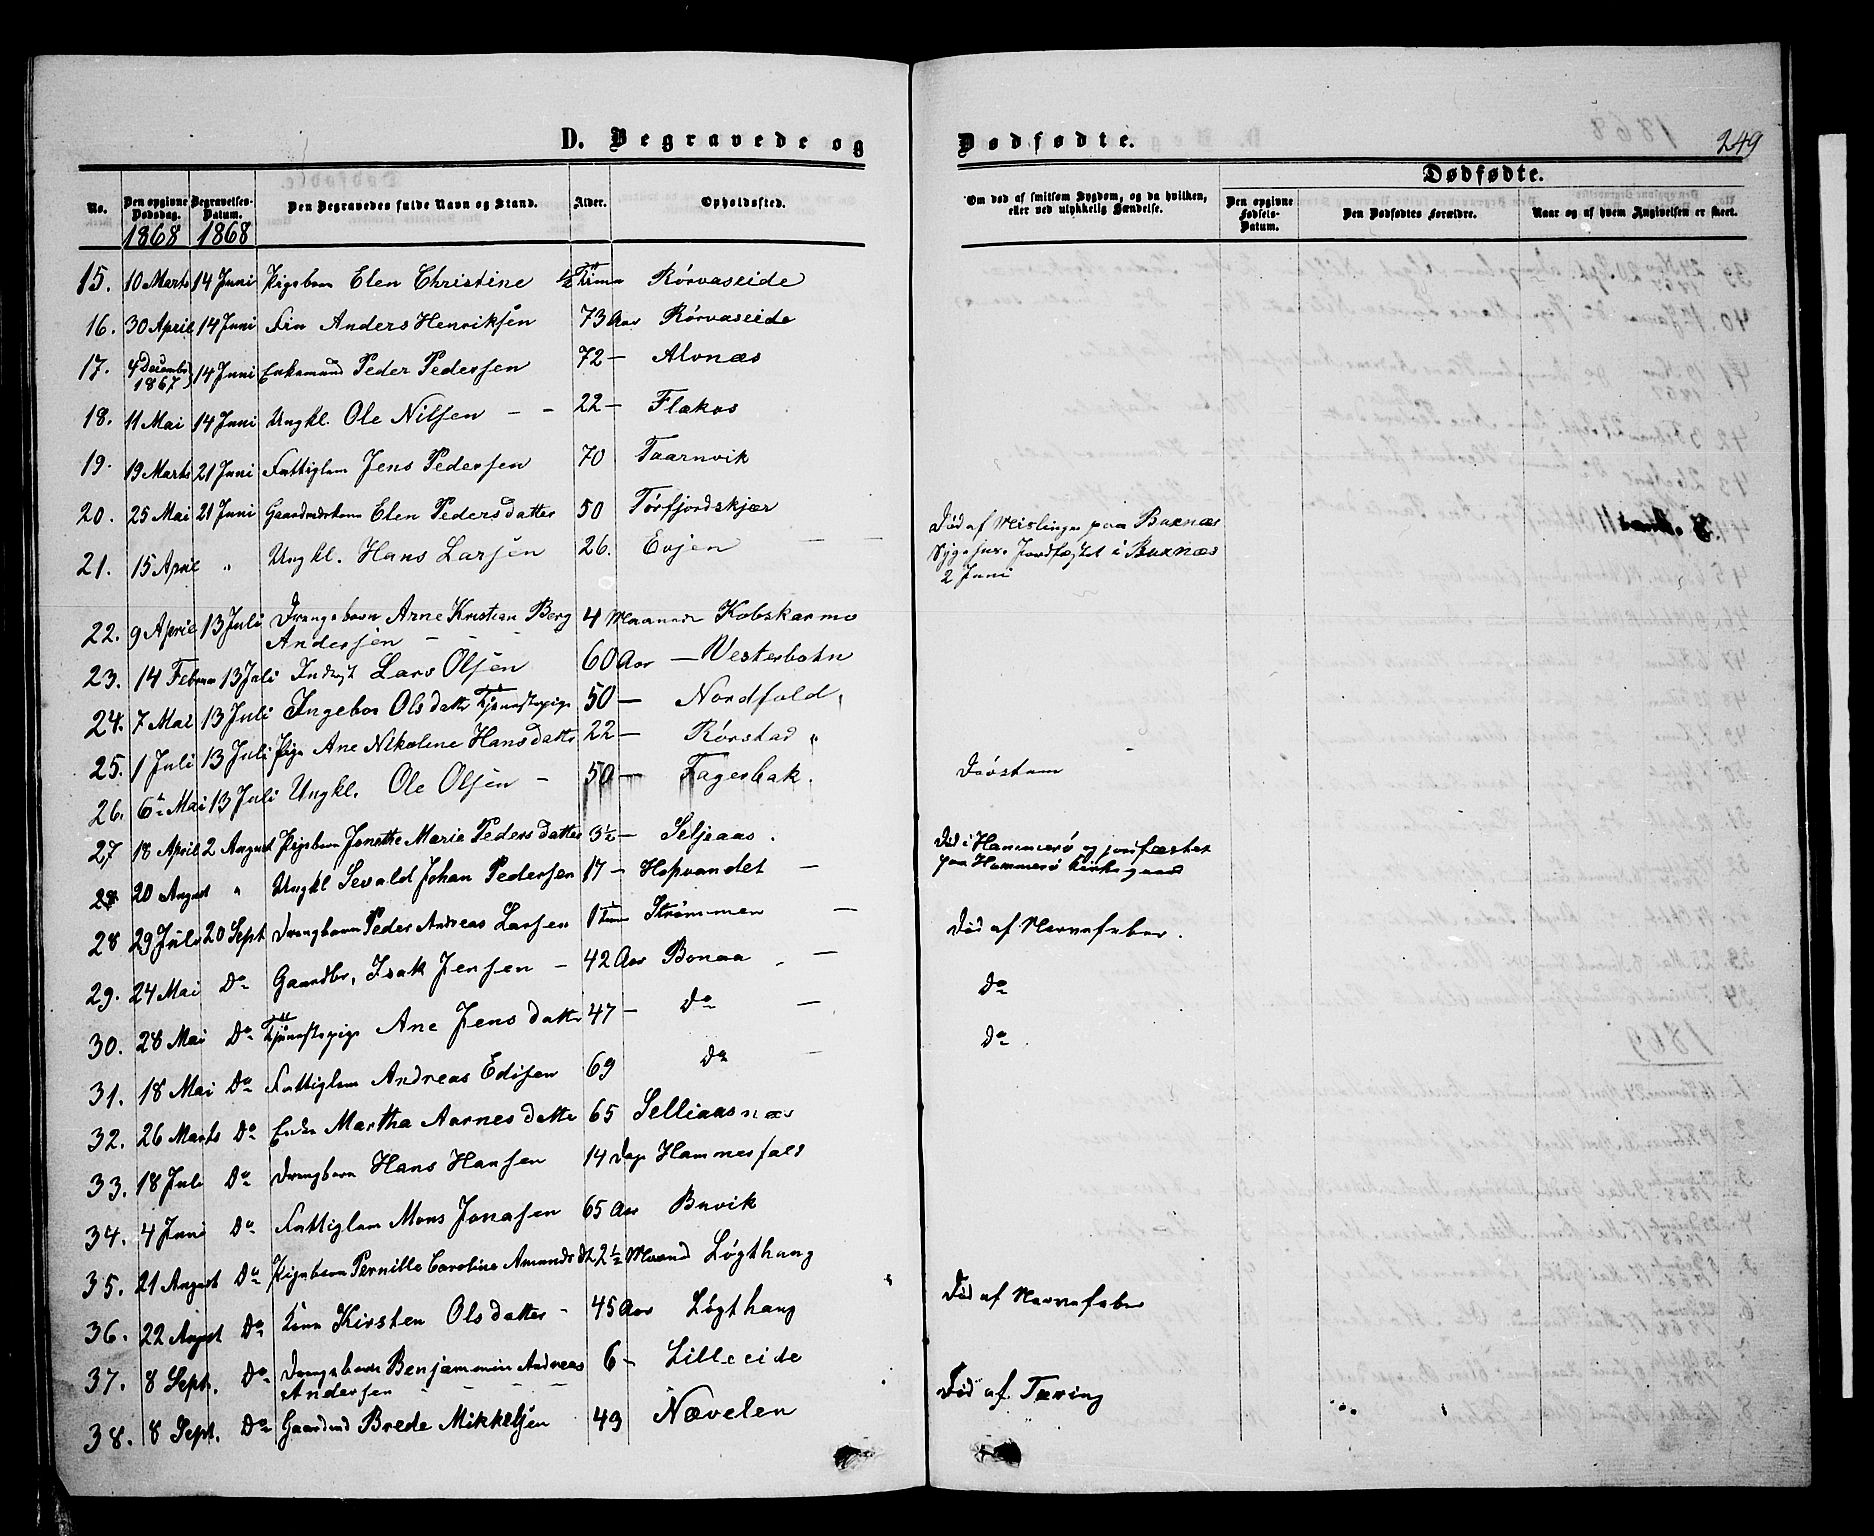 D. Begravede og Dødfødte.
249
No. Den opgivne Dødsdag. Begravelses-Datum. Den Begravedes fulde Navn og Stand. Alder. Opholdssted. Om død af smitsom Sygdom, og da hvilken, eller ved ulykkelig Hændelse.
Dødfødte.
Den opgivne Fødsels-Datum. Den Dødfødtes Forældre. Naar og af hvem Angivelsen er skeet.
1868 1868
15. 10 Marts 14 Juni Pigebarn Elen Christine ½ Time Rørvaseide
16. 30 April 14 Juni Fin Anders Henriksen 73 Aar Rørvaseide
17. 4 Decembr 1867 14 Juni Enkemand Peder Pedersen 72 — Alvnæs
18. 11 Mai 14 Juni Ungkl. Ole Nilsen - - 22 — Flakos
19. 19 Marts 21 Juni Fattiglem Jens Pedersen 70 Taarnvik
20. 25 Mai 21 Juni Gaardmdskone Elen Pedersdatter 50 Tørfjordskjær
21. 15 April " Ungkl. Hans Larsen 26. Evjen — — Død af Meslinger paa Buxnæs
Sygehus. Jordfæstet i Buxnæs
2 Juni
22. 9 April 13 Juli Drengebarn Arne Kristian Berg 4 Maaneder Kobskarmo
Andersen - - -
23. 14 Februar 13 Juli Inderst Lars Olsen 60 Aar — Vesterbotn
24. 7 Mai 13 Juli Ingebor Olsdatter Tjenestepige 50 — Nordfold
25. 1 Juli 13 Juli Pige Ane Nikoline Hansdatter 22 — Rørstad "
26. 6te Mai 13 Juli Ungkl. Ole Olsen - 50 — Fagerbak. Døvstum
27 18 April 2 August Pigebarn Jonette Marie Pedersdatter 3½ — Seljeaas.
20 August " Ungkl Sevald Johan Pedersen 17 - Hopvandet — Død i Hammerø og jordfæstet
paa Hammerø Kirkegaard
28 29 Juli 20 Sept Drengebarn Peder Andreas Larsen 1 Time Strømmen — Død af Nervefeber.
29. 24 Mai Do Gaardbr. Isak Jensen — 42 Aar Bonaa — Do
30. 28 Mai Do Tjenestepige Ane Jensdatter 47 — Do — Do
31. 18 Mai Do Fattiglem Andreas Edisen 69 Do —
32. 26 Marts Do Enke Martha Aarnesdatter 65 Selliaasnæs
33. 18 Juli Do Drengebarn Hans Hansen 14 Dage Hamnesfald
34. 4 Juni Do Fattiglem Mons Jonasen 65 Aar Buvik
35. 21 August Do Pigebarn Pernille Caroline Amundsdt 2½ Maaned Løgthaug
36. 22 August Do Kone Kirsten Olsdatter - 45 Aar Løgthaug Død af Nervefeber
37. 8 Sept. Do Drengebarn Benjammin Andreas 6 — Lilleeide
Andersen - - - -
38. 8 Sept. Do Gaardmd Brede Mikkelsen 49 Nævelen Død af Tæring